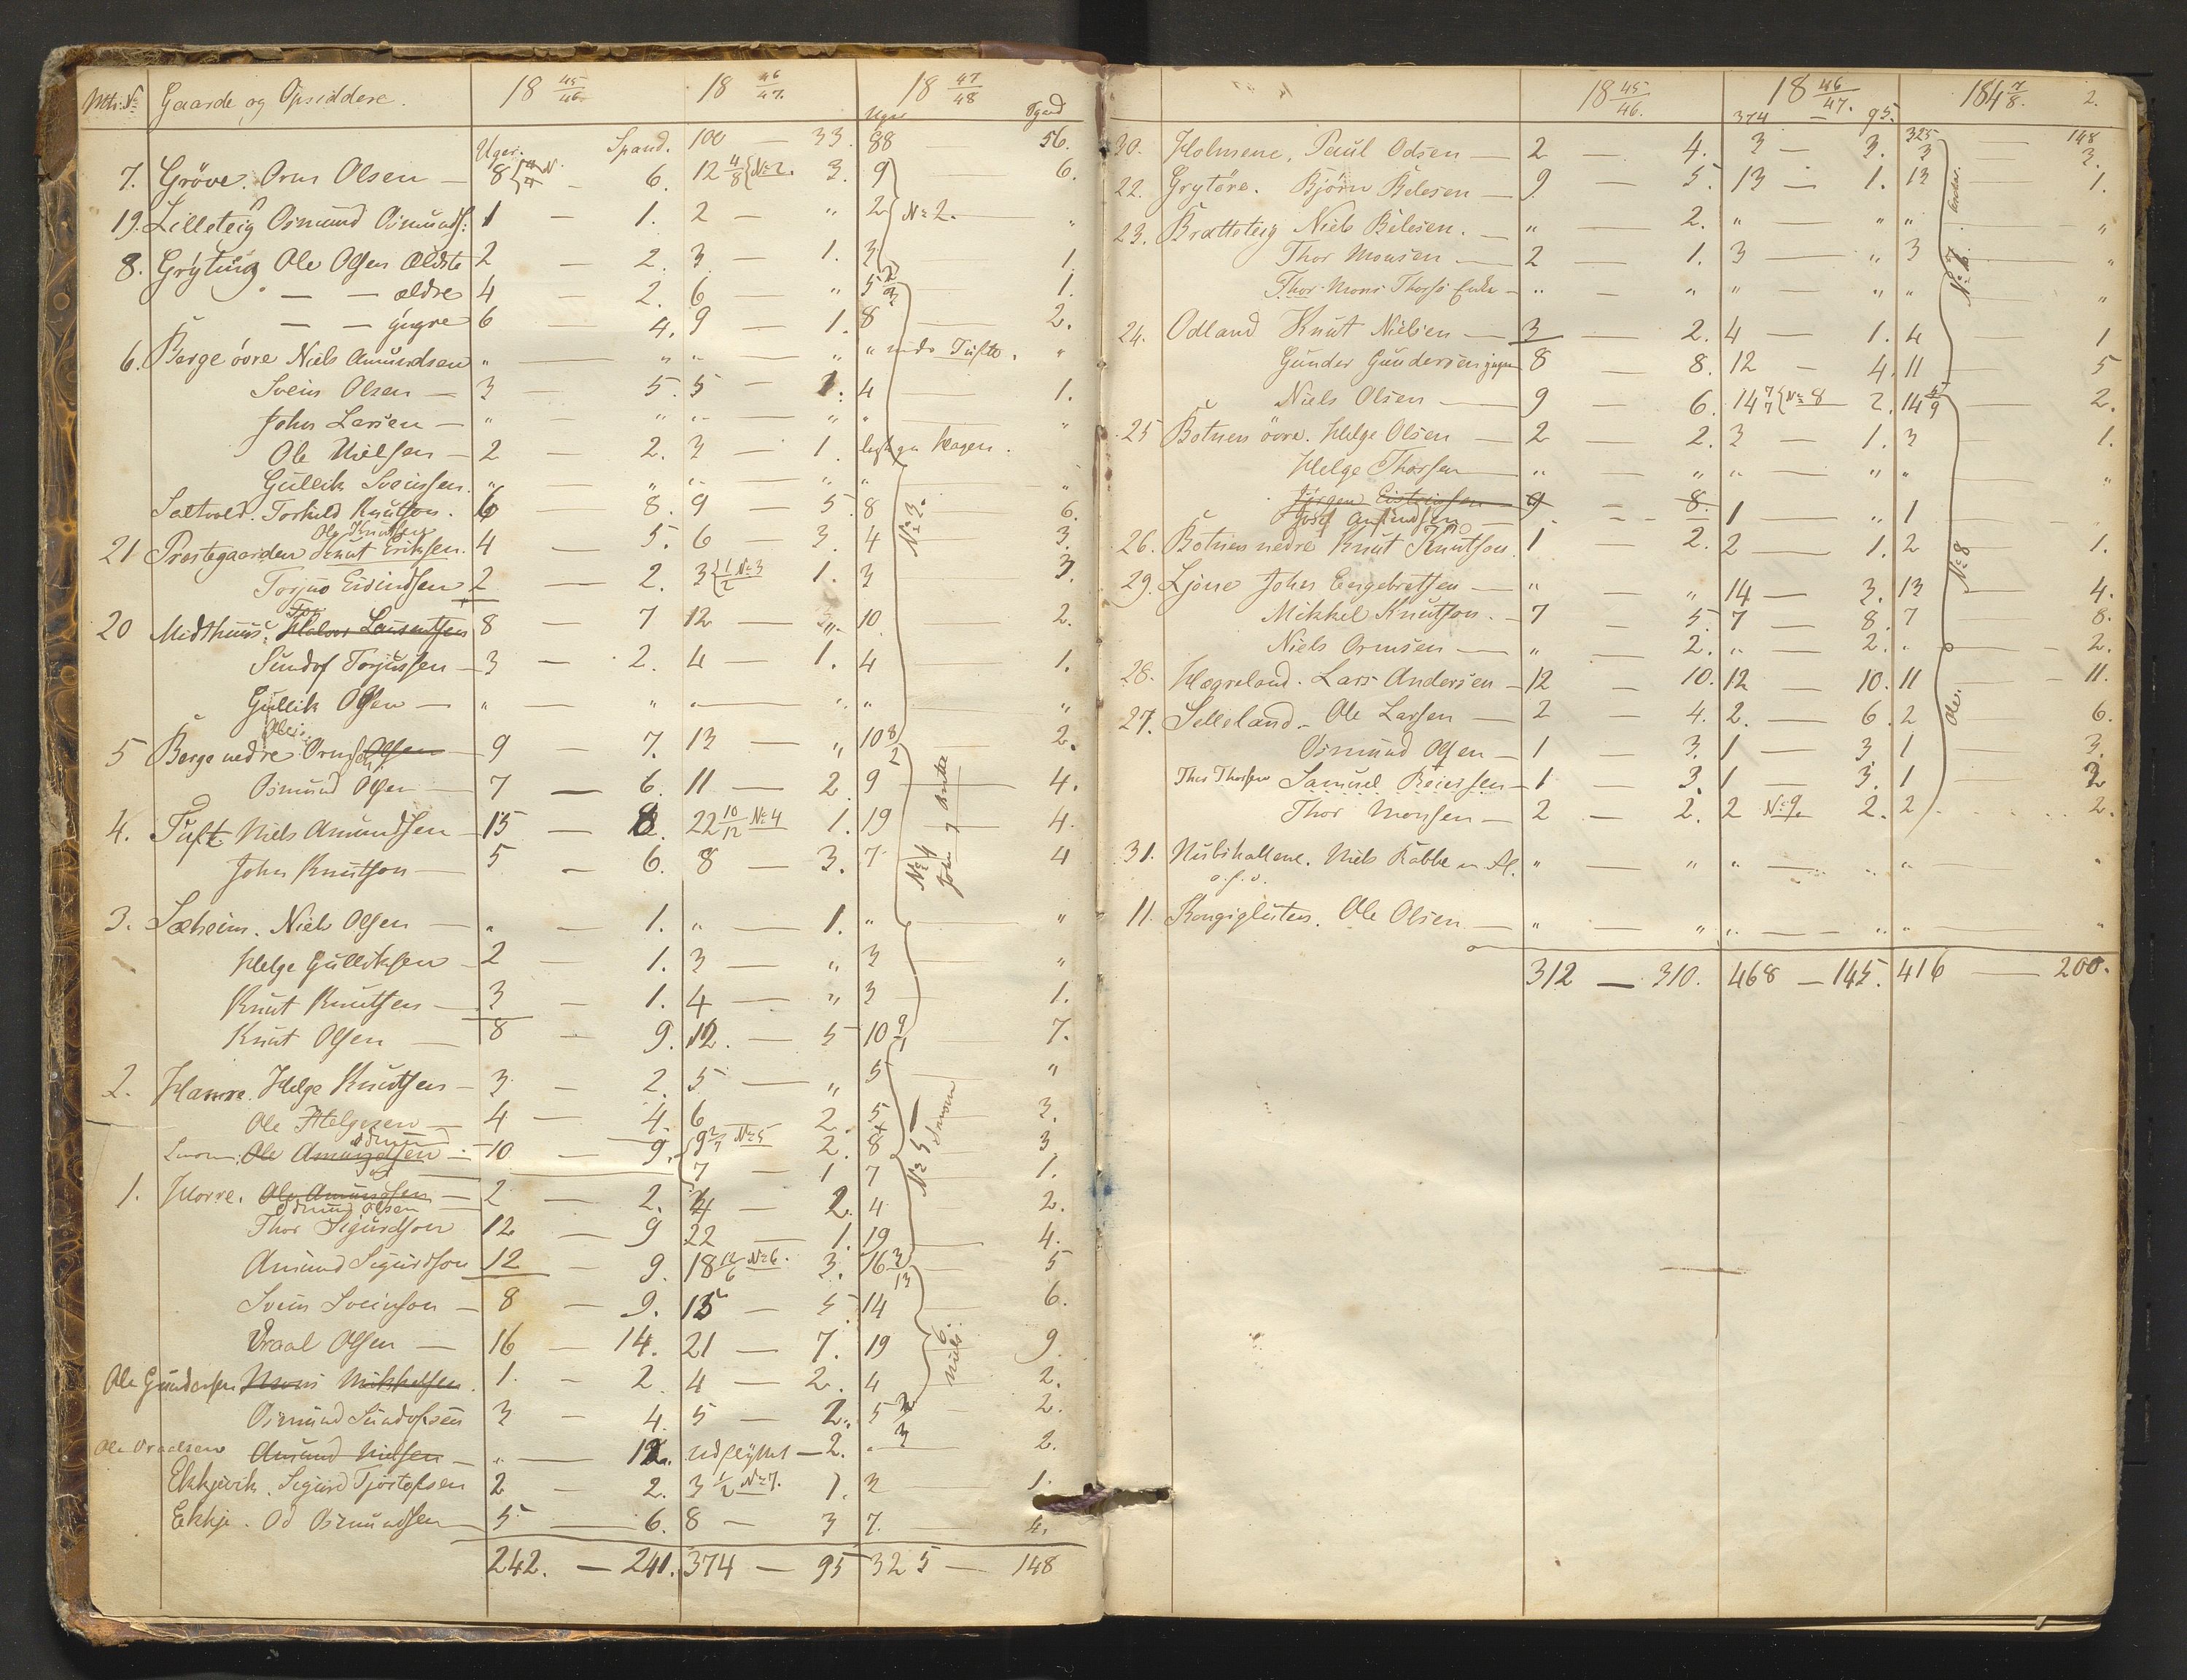 Mtr: No Gaarde og Opsiddere. 18 45/46 18 46/47. 18 47/48
Uger. Spand. 100 — 33. 88 56.
7. Gröve. Orm Olsen — 8 — 6. 12 4/8 No 2. 3. 9 6.
19. Lilleteig Osmund Osmunds: 1 — 1. 2 — " 2 No 2. "
8. Gryting Ole Olsen Ældste 2 — 2. 3 — 1. 3 1.
— — ældre 4 — 2. 6 — " 5 1.
— — yngre 6 — 4. 9 — 1. 8 2.
6. Berge övre Niels Amundsen " — " " — " " Tufte. "
Svein Olsen — 3 — 5. 5 — 1. 4 1.
John Larsen — " — " " — " " "
Ole Nielsen — 2 — 2. 3 — 1.
Gullik Sveinsen. " — " " — " " "
Saltvold. Torkild Knutson. 6 — 8. 9 — 5. 8 No 3. 6.
Ole Knutsen
21 Præstegaarden Knut Eriksen. 4 — 5. 6 — 3. 4 3.
Torjus Eivindsen 2 — 2. 3 1/2 No 3 1. 3 3.
Tor
20 Midthuus. Halvor Laurentsen 8 — 7 12 — " 10 2.
Sundof Torjussen — 3 — 2. 4 — 1. 4 1.
Gullik Olsen — " — " " — " " "
5 Berge nedre Orm Olsen 9 — 7. 13 — " 10 8/2 2.
Osmund Olsen — 7 — 6. 11 — 2. 9 4.
4. Tuft Niels Amundsen — 15 — 8. 22 10/12 No 4 1. 19 4.
John Knutson — 5 — 6. 8 — 3. 7 No 4 4
3. Sæheim. Niels Olsen — " — 1. " — 1. " "
Helge Gulliksen — 2 — 1. 3 — " 3 "
Knut Knutsen — 3 — 1. 4 — " 3 1.
Knut Olsen — 8 — 9. 12. — 5 10 9/1 7.
2. Hamre. Helge Knutsen — 3 — 2. 5 — " 5 "
Ole Helgesen — 4 — 4. 6 2. 5 3.
Ole Amundsen — 10 — 9. 9 2/7 No 5 2. 8 No 5 3
7 — 1 7 1.
1. Horre. Ole Amundsen — 2 — 2. 4 — 2. 4 2.
Odmund Olsen
Thor Sigurdson 12 — 9 22 — 1. 19 4.
Amund Sigurdson 12 — 9. 18 12/6 No 6. 3. 16 3/13 5
Svein Sveinson — 8 — 9. 15 — 5. 14 6.
Vraal Olsen — 16 — 14. 21 — 7. 19 6. Niels 9.
Ole Gundersen Mons Mikkelsen. 1. — 2. 4 — 2. 4 2.
Osmund Sundofsen 3 — 4. 5 — 2. 5 2/3 2.
Ole Vraalsen Amund Nielsen — " — 12. udflyttet — 2. " 3 2.
Ekkjevik. Sigurd Tjostofsen 2 — 2. 3 1/2 No 7. 1. 3 1.
Ekkje. Od Osmundsen 5 — 6. 8 — 3 7. 4.
242. — 241. 374 — 95 325 — 148
18 45/46. 18 46/47. 184 7/8. 2.
374 — 95. 325 148
30. Holmene, Paul Odsen — 2 — 4. 3 — 3. 3 3.
22. Grytöre. Björn Belesen — 9 — 5. 13 — 1. 13 1.
23. Bratteteig Niels Belesen. — " 2. " — " " "
Thor Monsen — 2 — 1. 3 — " 3 "
Thor Mons Thorsø Enke — " — " " — " " No 7. "
24. Odland Knut Nielsen — 3 — 2. 4 — 1. 4 1
Gunder Gundersen yngre 8 — 8. 12 — 4. 11 5
Niels Olsen — 9 — 6. 14 7/7 No 8 2. 14 5/9 2.
25 Botnen övre. Helge Olsen — 2 — 2. 3 — 1. 3 1.
Helge Thorsen — " — " " — " " "
Jörgen Eisteinsen 9 — 8.
1 — " 1
26. Botnen nedre Knut Knutson. 1 — 2. 2 — 1. 2 1.
29. Ljone John Engebretsen — " — " 14 — 3. 13 No 8 4.
Mikkel Knutson. — 7 — 5. 7 — 8. 7 8.
Niels Ormsen — " — 2. " — 2. " 2.
28. Hægreland. Lars Andersen — 12 — 10. 12 — 10. 11 11.
27. Selleland. Ole Larsen — 2 — 4. 2. — 6. 2 Ole. 6.
Osmund Olsen — 1 — 3. 1 — 3. 1 3.
Thor Thorsen Samuel Reiersen — 1 — 3. 1 — 3. 1 2
Thor Monsen — 2 — 2. 2 No 9. 2. 2 2.
31. Niels Rabbe " — " " — " " "
11. Ole Olsen — " — " " — " " "
312 — 310. 468 — 145. 416 — 200.